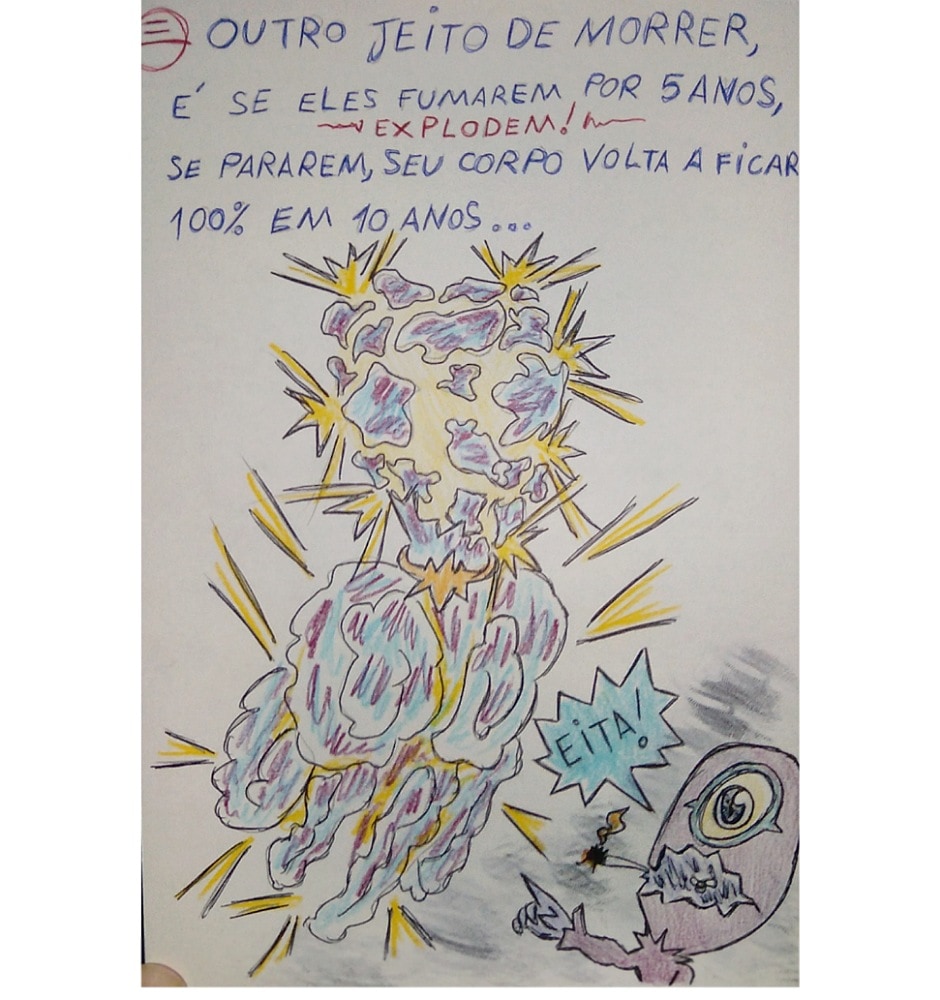 OUTRO JEITO DE MORRER,
E' SE ELES FUMAREM POR 5 ANOS,
EXPLODEM!
SE PARAREM, SEU CORPO VOLTA A FICAR
100% EM 10 ANOS...
EITA!